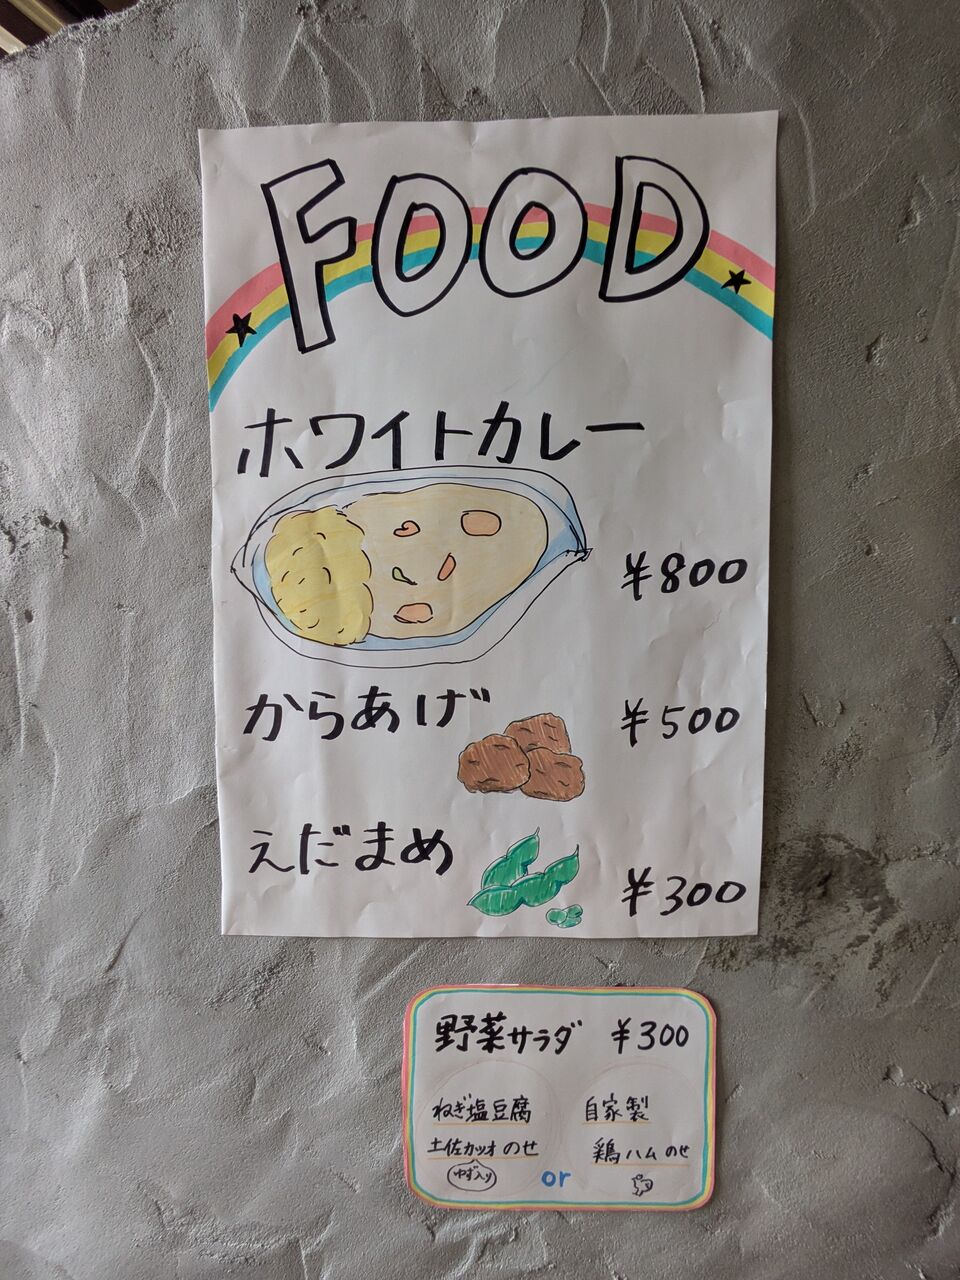 FOOD
ホワイトカレー
¥800
からあげ ¥500
えだまめ
¥300
野菜サラダ ¥300
ねぎ塩豆腐
土佐カツオのせ
ゆず入り
or
自家製
鶏ハムのせ